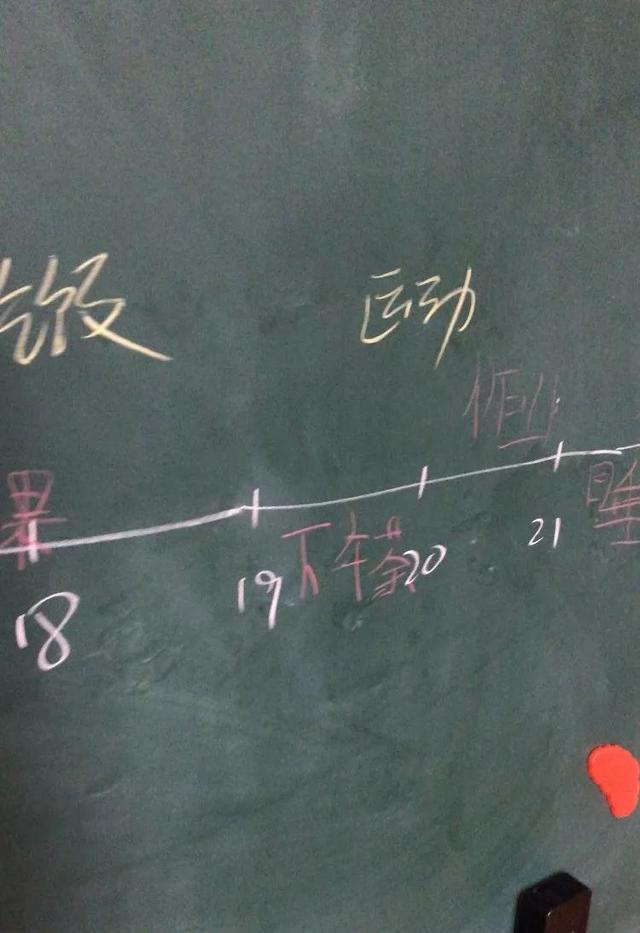 吃饭 运动
作业
果
下午茶
18 19 20 21